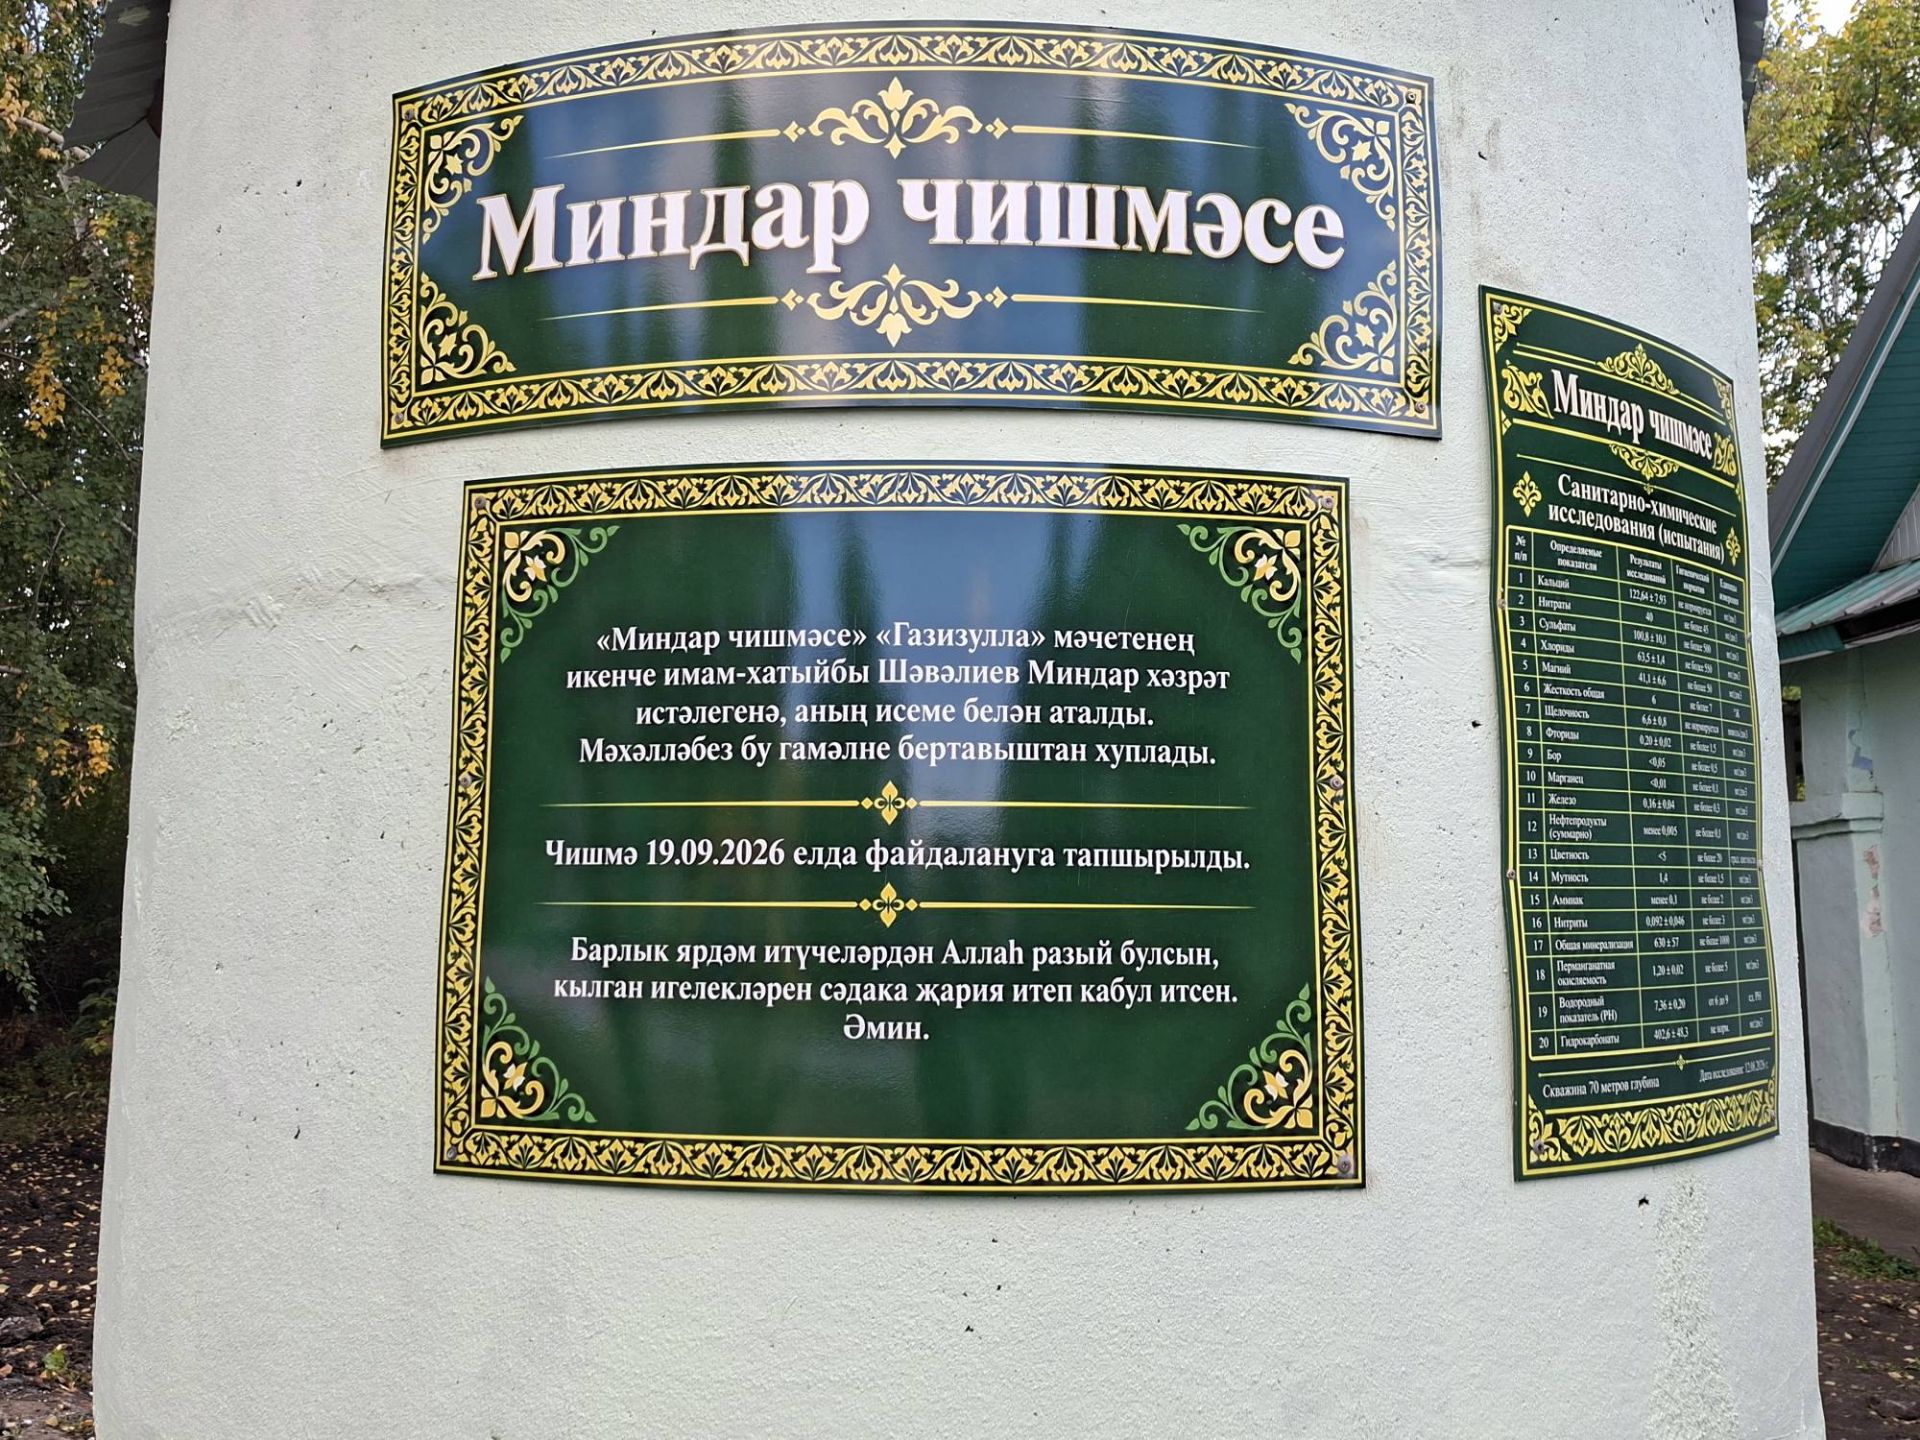 Миндар чишмәсе
«Миндар чишмәсе» «Газизулла» мәчетенең
икенче имам-хатыйбы Шәвәлиев Миндар хәзрәт
истәлегенә, аның исеме белән аталды.
Мәхәлләбез бу гамәлне бертавыштан хуплады.
Чишмә 19.09.2026 елда файдалануга тапшырылды.
Барлык ярдәм итүчеләрдән Аллаһ разый булсын,
кылган игелекләрен сәдака җария итеп кабул итсен.
Әмин.
Миндар чишмәсе
Санитарно-химические
исследования (испытания)
№ п/п Определяемые показатели Результаты исследований Гигиенический норматив Единицы измерения
1 Кальций 122,64 ± 7,93 не нормируется мг/дм3
2 Нитраты 40 не более 45 мг/дм3
3 Сульфаты 100,8 ± 10,1 не более 500 мг/дм3
4 Хлориды 63,5 ± 1,4 не более 350 мг/дм3
5 Магний 41,1 ± 6,6 не более 50 мг/дм3
6 Жесткость общая 6 не более 7 °Ж
7 Щелочность 6,6 ± 0,8 не нормируется ммоль/дм3
8 Фториды 0,20 ± 0,02 не более 1,5 мг/дм3
9 Бор <0,05 не более 0,5 мг/дм3
10 Марганец <0,01 не более 0,1 мг/дм3
11 Железо 0,16 ± 0,04 не более 0,3 мг/дм3
12 Нефтепродукты (суммарно) менее 0,005 не более 0,1 мг/дм3
13 Цветность <5 не более 20 град. цветности
14 Мутность 1,4 не более 1,5 мг/дм3
15 Аммиак менее 0,1 не более 2 мг/дм3
16 Нитриты 0,092 ± 0,046 не более 3 мг/дм3
17 Общая минерализация 630 ± 57 не более 1000 мг/дм3
18 Перманганатная окисляемость 1,20 ± 0,02 не более 5 мг/дм3
19 Водородный показатель (PH) 7,36 ± 0,20 от 6 до 9 ед. PH
20 Гидрокарбонаты 402,6 ± 48,3 не норм. мг/дм3
Скважина 70 метров глубина Дата исследования: 12.08.2026 г.